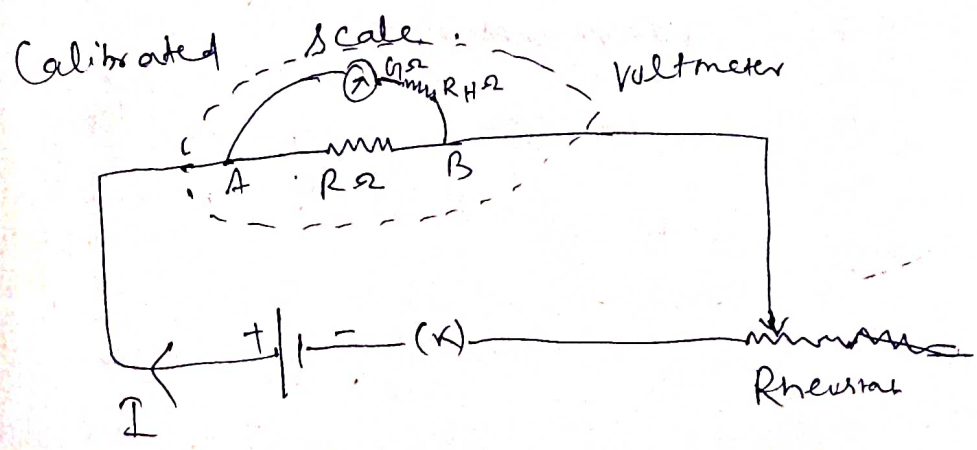 Calibrated scale.
Voltmeter
GΩ
R_HΩ
A
RΩ
B
+
-
(K)
I
Rheostat